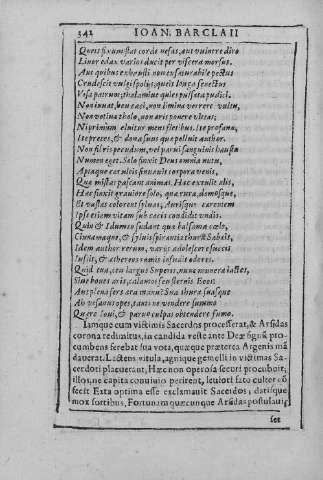 342 IOAN. BARCLAII
Queis fixum stat corde nefas, aut vulnere diro
Livor edax varios ducit per viscera morsus.
Aut quibus exhausti non exsaturabile pectus
Crudescit vulgi spoliis, queis senectus
Visa patrum, thalamique quies pulsata pudici.
Non iuvat, heu cæci, non limina verrere vultu,
Non votina tholo, non aris ponere vittas:
Ni primùm eluitur mens fletibus. Ite profani,
Ite preces, & dona, suus quæ polluit author.
Non fibris pecudum, vel parui sanguinis haustu
Numen eget. Solo finxit Deus omnia nutu,
Aptaque cæruleis innauit corpora venis,
Quæ mistas pascant animas. Hac extulit alis,
Hac finxit grauiore solo, quæ rura, domosque,
Et vastas colerent syluas, Aurisque carentem
Ipse etiam vitam sub cæcis condidit vndis.
Quin & Idumeo sudant quæ balsama cælo,
Cinnamaque, & syluis spirantia thura Sabæis,
Idem author rerum, vario adolescere succo
Iussit, & æthereos ramis infudit odores.
Quid tua, ceu largus Superis, nunc munera iactes,
Siue boues aris, calamos seu sternis Eoos?
Aut plenas fers ara manus? Sua thura suasque
Ah vesanus opes, tantò ne vendere summo
Quære Ioui, & paruo culpas obtendere fumo.
Iamque cum victimis Sacerdos processerat, & Arsidas
corona redimitus, in candida veste ante Deæ signū pro-
cumbens ferebat sua vota, quæque præterea Argenis mā
dauerat. Lactens vitula, agnique gemelli in victimas Sa-
cerdoti placuerant, Hæc non operosa securi procubuit;
illos, ne capita conuiuio perirent, leuiori fato culter cō
fecit Exta optima esse exclamauit Sacerdos; datisque
mox sortibus, Fortunam quæcunque Arsidas postulauit,
set